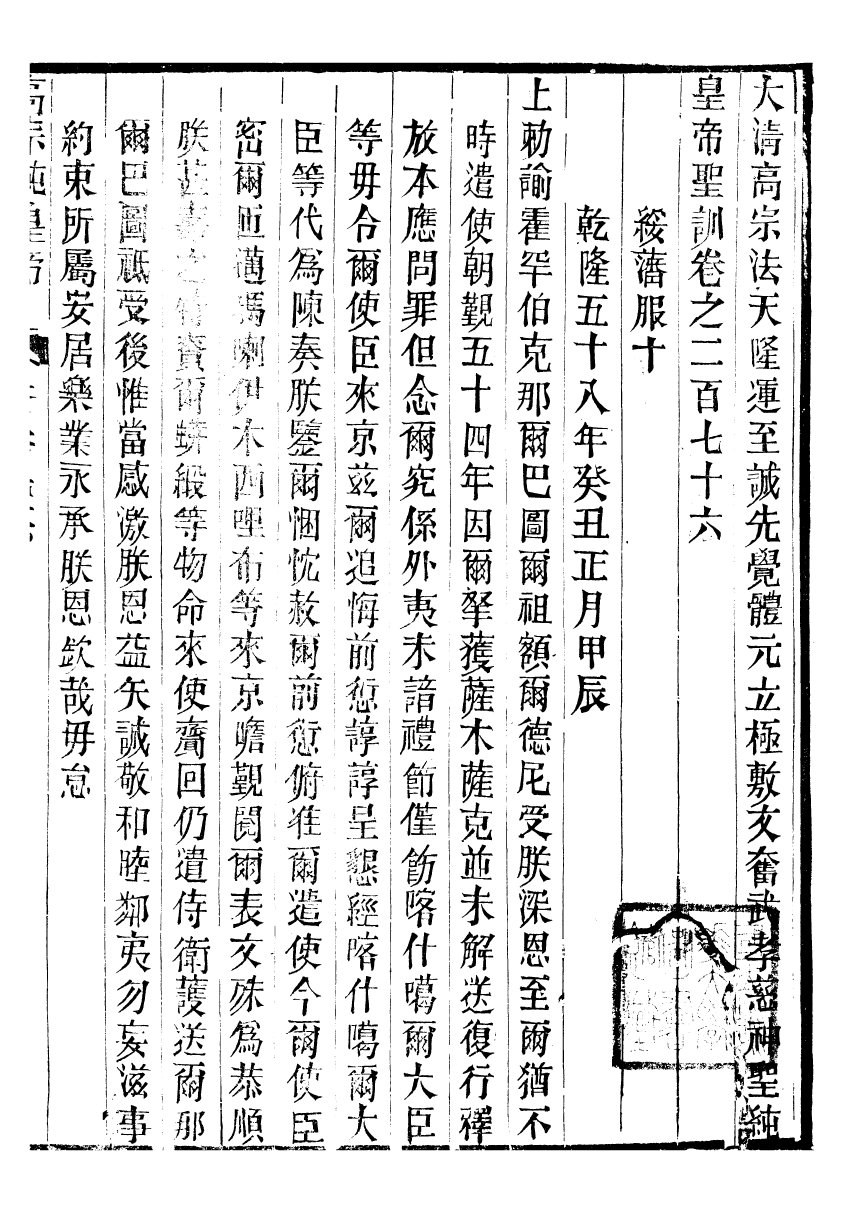 大淸高宗法天隆運至誠先覺體元立極敷文奮武孝慈神聖純
皇帝聖訓卷之二百七十六
綏藩服十
乾隆五十八年癸丑正月甲辰
上勅諭霍罕伯克那爾巴圖爾祖額爾德尼受朕深恩至爾猶不
時遣使朝覲五十四年因爾拏獲薩木薩克並未解送復行釋
放本應問罪但念爾究係外夷未諳禮節僅飭喀什噶爾大臣
等毋令爾使臣來京茲爾追悔前愆諄諄呈懇經喀什噶爾大
臣等代爲陳奏朕鑒爾悃忱赦爾前愆俯准爾遣使今爾使臣
密爾匝邁瑪喇伊木西哩布等來京瞻覲閱爾表文殊爲恭順
朕甚嘉之特賚爾蟒緞等物命來使齎回仍遣侍衛護送爾那
爾巴圖祗受後惟當感激朕恩益矢誠敬和睦鄰夷勿妄滋事
約束所屬安居樂業永承朕恩欽哉毋怠
高宗純皇帝